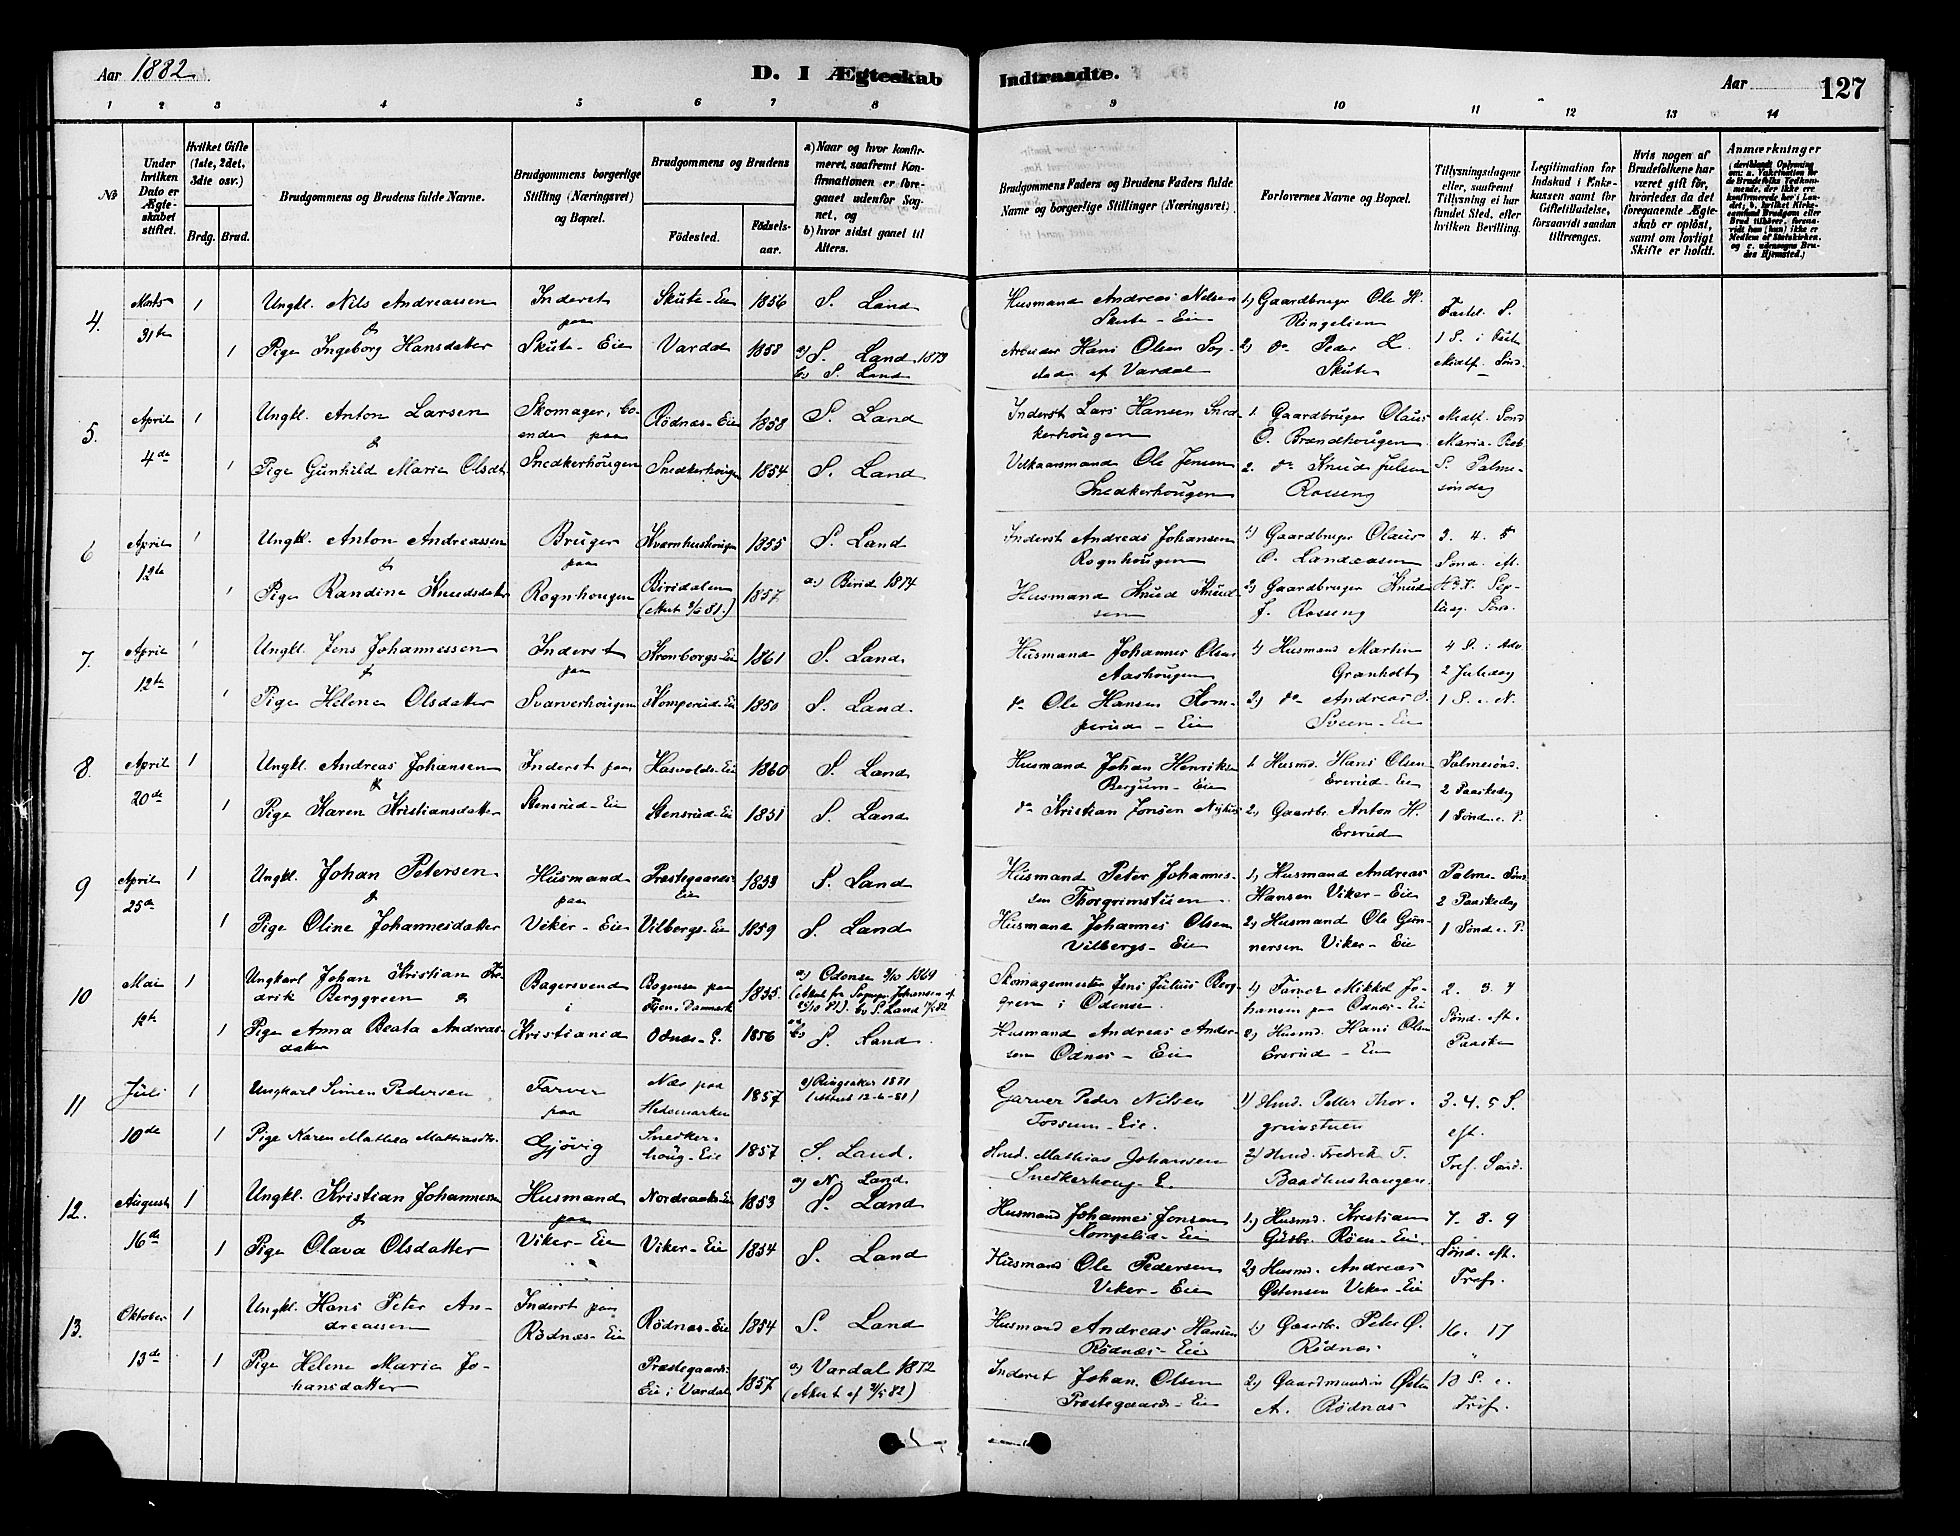 Aar 1882
D. I Ægteskab Indtraadte.
Aar
127
1 2 3 4 5 6 7 8 9 10 11 12 13 14
No
Under hvilken Dato er Ægteskabet stiftet.
Hvilket Gifte (1ste, 2det, 3die osv.)
Brdg. Brud.
Brudgommens og Brudens fulde Navne.
Brudgommens borgerlige Stilling (Næringsvei) og Bopæl.
Brudgommens og Brudens
Födested.
Födsels-aar.
a) Naar og hvor konfirmeret, saafremt Konfirmationen er foregaaet udenfor Sognet, og
b) hvor sidst gaaet til Alters.
Brudgommens Faders og Brudens Faders fulde Navne og borgerlige Stillinger (Næringsvei).
Forlovernes Navne og Bopæl.
Tillysningsdagene eller, saafremt Tillysning ei har fundet Sted, efter hvilken Bevilling.
Legitimation for Indskud i Enkekassen samt for Giftetilladelse, forsaavidt saadan tiltrænges.
Hvis nogen af Brudefolkene har været gift før, hvorledes da det foregaaende Ægteskab er oplöst, samt om lovligt Skifte er holdt.
Anmærkninger
4. Marts 1 Ungkl. Nils Andreassen Inderst Skute-Eie 1856 S. Land Husmand Andreas Nilsen 1) Gaardbruger Ole H. Fastel. S.
& paa Skute-Eie Ringelien
31te 1 Pige Ingeborg Hansdatter Skute-Eie Vardal 1858 a) S. Land 1873 Hans Olsen 2) do Peder Skute 1 S. i Faste
b) S. Land af Vardal Midtf. Sönd.
5. April 1 Ungkl. Anton Larsen Skomager, bo- Rödnæs-Eie 1858 S. Land Inderst Lars Hansen Sned- 1. Gaardbruger Olaus Midtf. Sönd
& ende paa kerhougen O. Brændhougen Maria
4de 1 Pige Gunhild Marie Olsdt. Snedkerhougen Snedkerhougen 1854 S. Land Vilkaarsmand Ole Jensen 2. do Knud Julsen S. Palme-
Snedkerhougen Rosseng söndag
6 April 1 Ungkl. Anton Andreassen Bruger Kværnhushougen 1855 S. Land Inderst Andreas Johansen 1) Gaardbruger Olaus 3. 4. 5
& paa Rognhougen O. Landaasen Sönd. eft.
12te 1 Pige Randine Knudsdatter Rognhougen Biridalen 1857 a.) Birid 1874 Husmand Knud Knud- 2) Gaardbruger Knud
sen J. Rosseng
7 April 1 Ungkl. Jens Johannessen Inderst Kronborgs-Eie 1861 S. Land Husmand Johannes Olsen 1) Husmand Martin 4 S. i Adv
& paa Aashougen Granholt 2 Juledag
12te 1 Pige Helene Olsdatter Svarverhougen Komperud-Eie 1850 S. Land. do Ole Hansen Kom- 2) do Andreas O. 1 S. e. N.
perud-Eie Sveen-Eie
8. April 1 Ungkl. Andreas Johansen Inderst paa Hasvolds-Eie 1860 S. Land Husmand Johan Henriksen 1. Husmd. Hans Olsen Palmesönd.
& Bergum-Eie Ersrud-Eie 2 Paaskedag
20de 1 Pige Karen Kristiansdatter Stensrud-Eie Stensrud-Eie 1851 S. Land do Kristian Jonsen 2) Gaardbr. Anton H. 1 Sönd. e. P.
Ersrud
9 April 1 Ungkl. Johan Petersen Husmand Præstegaards- 1833 S. Land Husmand Peter Johannes- 1) Husmand Andreas Palme-Sönd
& paa Eie sen Thorgrimstuen Hansen Viker-Eie 2 Paaskedag
25de 1 Pige Oline Johannesdatter Viker-Eie Vilbergs-Eie 1859 S. Land Husmand Johannes Olsen 2) Husmand Ole Gun- 1 Sönd. e. P.
Vilbergs-Eie nersen Viker-Eie
10 Mai 1 Ungkarl Johan Kristian Fre- Bagersvend Bogense paa 1855 a) Odense 3/10 1869 Skomagermester Jens Julius Berg- 1) Farver Mikkel Jo- 2. 3. 4
drik Berggreen & i Fyen, Danmark b) S. Land green i Odense. hansen paa Odnæs-Eie Sönd. eft.
12te 1 Pige Anna Beata Andreas- Kristiania Odnæs-E. 1856 S. Land. Husmand Andreas Ander- 2) Husmd. Hans Olsen Paaske
datter sen Odnæs-Eie Ersrud-Eie
11 Juli 1 Ungkarl Simen Pedersen Farver Næs paa 1857 a) Ringsaker 1871 Garver Peder Nilsen 1) Husd. Petter Thor- 3. 4. 5 S.
paa Hedemarken (Attest 12-6-81) Fossum-Eie. grimstuen eft.
10de 1 Pige Karen Mathea Mathiasdtr. Gjövig Snedker- 1857 S. Land. Husd. Mathias Johansen 2) Husd. Fredrik T. Tref. Sönd.
houg-Eie Snedkerhoug-E. Baadhushaugen.
12. August 1 Ungkl. Kristian Johannessen Husmand Nordraaks-Eie 1853 a) N. Land Husmand Johannes Jonsen 1.) Husmd. Kristian 7. 8. 9
& paa S. Land Kompelid-Eie Gulbr. Röen-Eie. Sönd. eft.
16de 1 Pige Olava Olsdatter Viker-Eie Viker-Eie 1854 S. Land Husmand Ole Pedersen 2) Husmd. Andreas Tref.
Viker-Eie Östensen Viker-Eie
13. Oktober 1 Ungkl. Hans Peter An- Inderst paa Rödnæs-Eie 1854 S. Land Husmand Andreas Hansen 1) Gaardbr. Peter Ö. 16. 17
dreassen Rödnæs-Eie Rödnæs-Eie Rödnæs
13de 1 Pige Helene Marie Jo- Præstegaards- 1857 a) Vardal 1872 Inderst Johan Olsen 2.) Gaardmanden Östen 18 S. e.
hansdatter Eie i Vardal (Attest af 2/9 82) Præstegaards-Eie A. Rödnæs Tref.